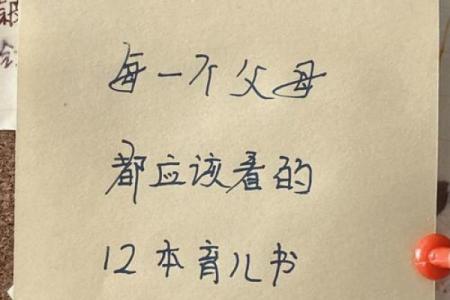 每一个父母
都应该看的
12本育儿书